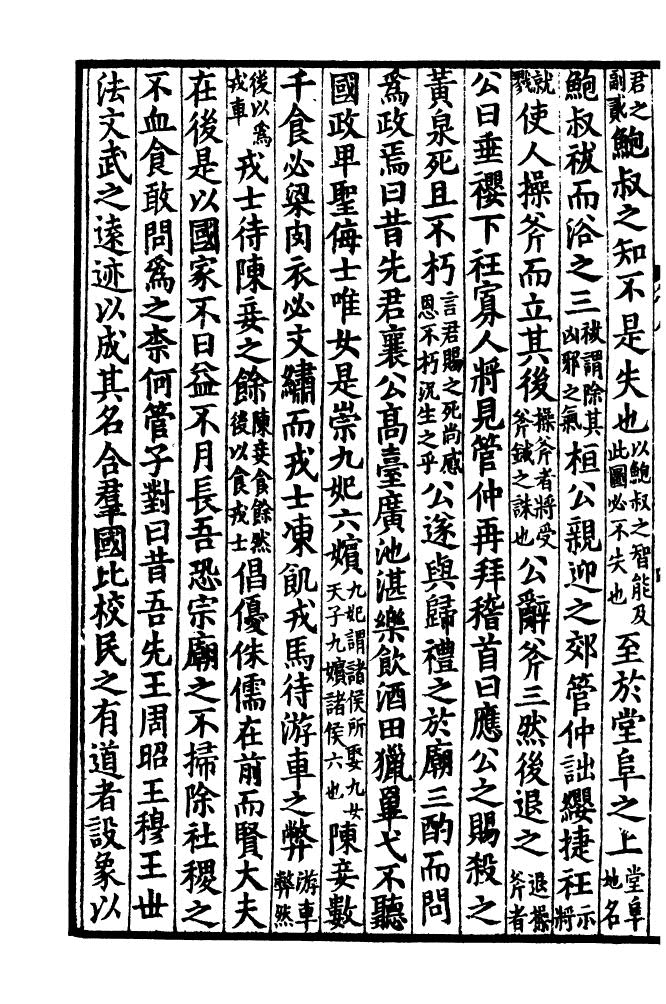 君之副貳鮑叔之知不是失也以鮑叔之智能及此圖必不失也至於堂阜之上堂阜地名
鮑叔祓而浴之三祓謂除其凶邪之氣桓公親迎之郊管仲詘纓捷衽示將
就戮使人操斧而立其後操斧者將受斧鉞之誅也公辭斧三然後退之退操斧者
公曰垂纓下衽寡人將見管仲再拜稽首曰應公之賜殺之
黃泉死且不朽言君賜之死尚感恩不朽況生之乎公遂與歸禮之於廟三酌而問
爲政焉曰昔先君襄公高臺廣池湛樂飲酒田獵畢弋不聽
國政卑聖侮士唯女是崇九妃六嬪九妃謂諸侯所娶九女天子九嬪諸侯六也陳妾數
千食必粱肉衣必文繡而戎士凍飢戎馬待游車之弊游車弊然
後以爲戎車戎士待陳妾之餘陳妾食餘然後以食戎士倡優侏儒在前而賢大夫
在後是以國家不日益不月長吾恐宗廟之不掃除社稷之
不血食敢問爲之柰何管子對曰昔吾先王周昭王穆王世
法文武之遠迹以成其名合羣國比校民之有道者設象以